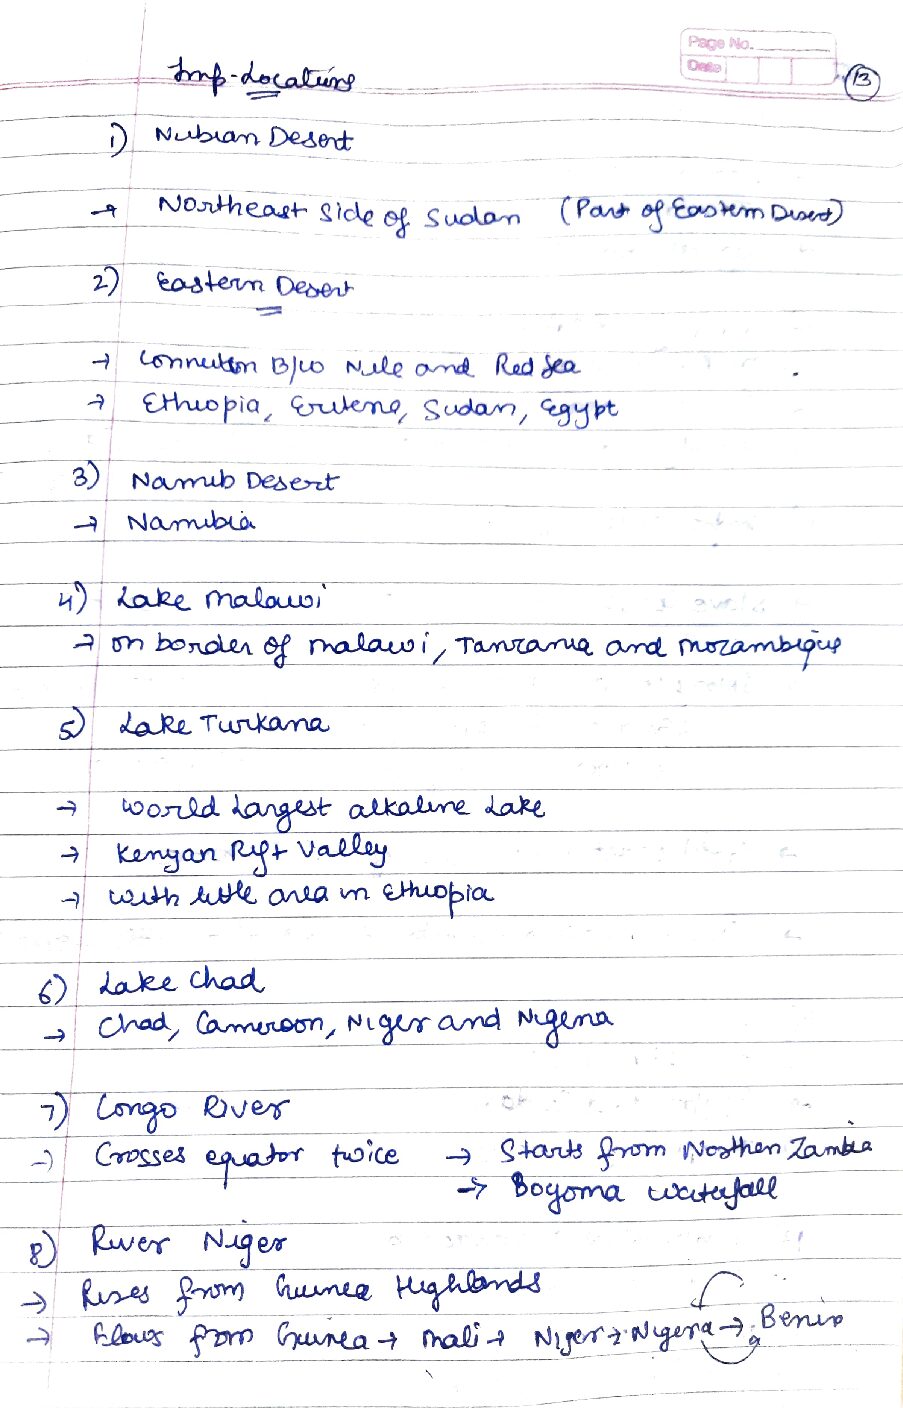 Page No.
Date
13
Imp-Locations
1) Nubian Desert
→ Northeast side of Sudan (Part of Eastern Desert)
2) Eastern Desert
→ Connection B/w Nile and Red Sea
→ Ethiopia, Eritena, Sudan, Egypt
3) Namib Desert
→ Namibia
4) Lake Malawi
→ on border of Malawi, Tanzania and Mozambique
5) Lake Turkana
→ World Largest alkaline Lake
→ Kenyan Rift Valley
→ with little area in Ethiopia
6) Lake Chad
→ Chad, Cameroon, Niger and Nigeria
7) Congo River
→ Crosses equator twice → Starts from Northen Zambia
→ Boyoma waterfall
8) River Niger
→ Rises from Guinea Highlands
→ Flows from Guinea → Mali → Niger → Nigeria → Benin